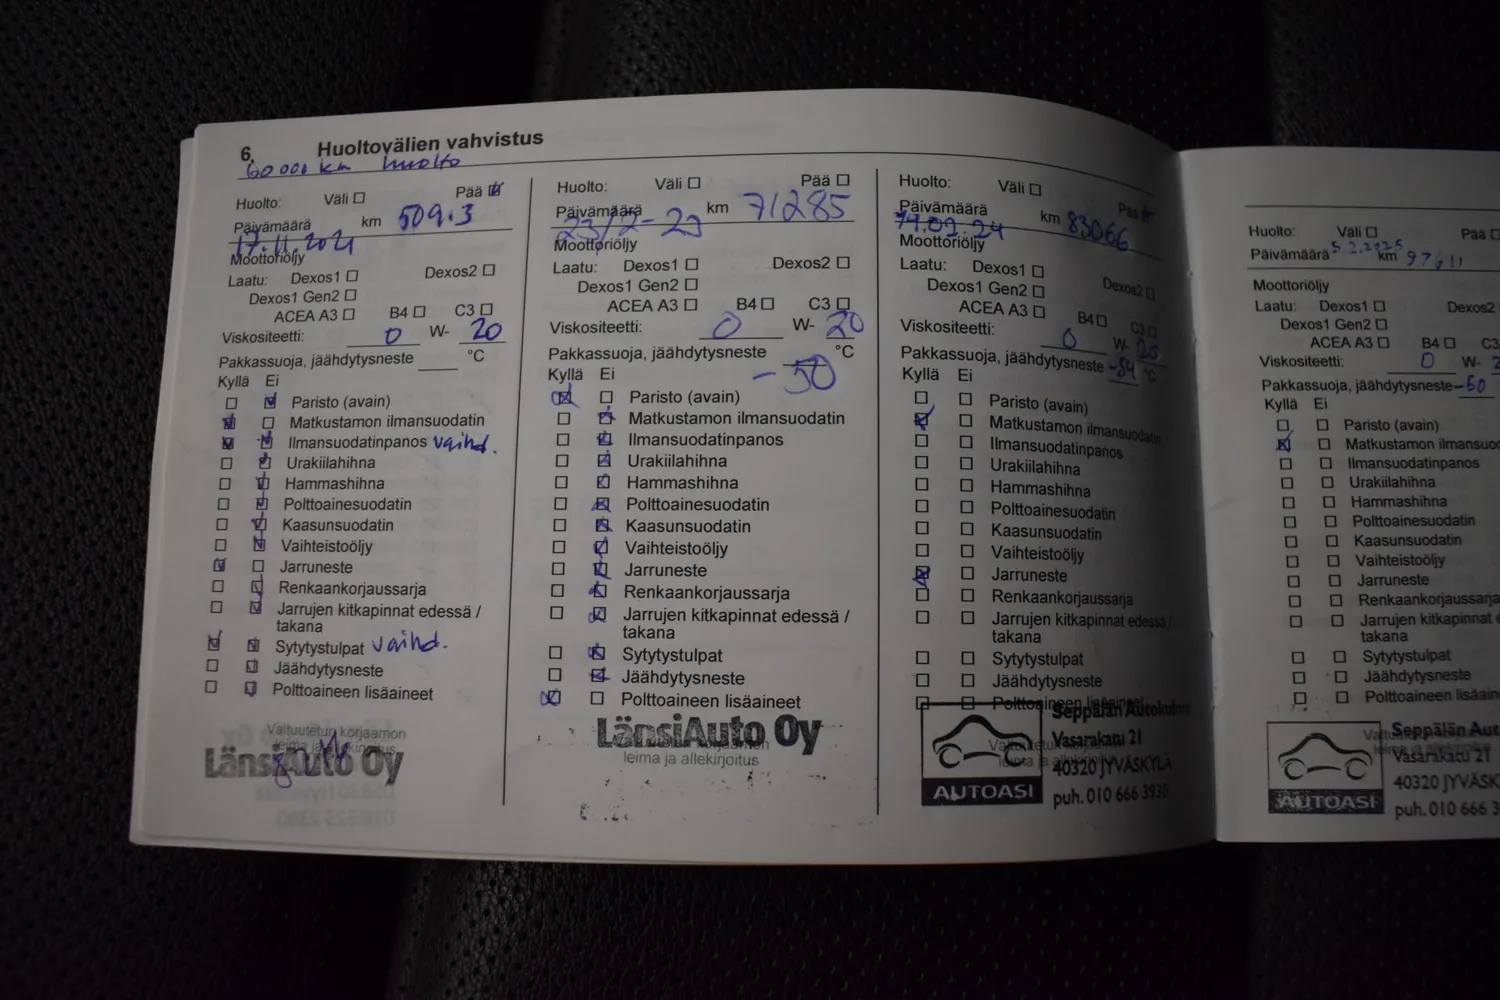 6. Huoltovälien vahvistus
60 000 km huolto
Huolto: Väli ☐ Pää ☒
Päivämäärä km 509.3
17.11.2021
Moottoriöljy
Laatu: Dexos1 ☐ Dexos2 ☐
Dexos1 Gen2 ☐
ACEA A3 ☐ B4 ☐ C3 ☐
Viskositeetti: 0 W- 20
Pakkassuoja, jäähdytysneste °C
Kyllä Ei
☐ ☒ Paristo (avain)
☒ ☐ Matkustamon ilmansuodatin
☒ ☒ Ilmansuodatinpanos vaihd.
☐ ☒ Urakiilahihna
☐ ☒ Hammashihna
☐ ☒ Polttoainesuodatin
☐ ☒ Kaasunsuodatin
☐ ☒ Vaihteistoöljy
☒ ☐ Jarruneste
☐ ☒ Renkaankorjaussarja
☐ ☒ Jarrujen kitkapinnat edessä /
takana
☒ ☒ Sytytystulpat vaihd.
☐ ☒ Jäähdytysneste
☐ ☒ Polttoaineen lisäaineet
Valtuutetun korjaamon
leima ja allekirjoitus
LänsiAuto Oy
Huolto: Väli ☐ Pää ☐
Päivämäärä km 71285
23/2-23
Moottoriöljy
Laatu: Dexos1 ☐ Dexos2 ☐
Dexos1 Gen2 ☐
ACEA A3 ☐ B4 ☐ C3 ☐
Viskositeetti: 0 W- 20
Pakkassuoja, jäähdytysneste -50 °C
Kyllä Ei
☒ ☐ Paristo (avain)
☐ ☒ Matkustamon ilmansuodatin
☐ ☒ Ilmansuodatinpanos
☐ ☒ Urakiilahihna
☐ ☒ Hammashihna
☐ ☒ Polttoainesuodatin
☐ ☒ Kaasunsuodatin
☐ ☒ Vaihteistoöljy
☐ ☒ Jarruneste
☐ ☒ Renkaankorjaussarja
☐ ☒ Jarrujen kitkapinnat edessä /
takana
☐ ☒ Sytytystulpat
☐ ☒ Jäähdytysneste
☒ ☐ Polttoaineen lisäaineet
LänsiAuto Oy
leima ja allekirjoitus
Huolto: Väli ☐ Pää ☒
Päivämäärä km 83066
Moottoriöljy
Laatu: Dexos1 ☐ Dexos2 ☐
Dexos1 Gen2 ☐
ACEA A3 ☐ B4 ☐ C3 ☐
Viskositeetti: 0 W- 20
Pakkassuoja, jäähdytysneste °C
Kyllä Ei
☐ ☐ Paristo (avain)
☒ ☐ Matkustamon ilmansuodatin
☐ ☐ Ilmansuodatinpanos
☐ ☐ Urakiilahihna
☐ ☐ Hammashihna
☐ ☐ Polttoainesuodatin
☐ ☐ Kaasunsuodatin
☐ ☐ Vaihteistoöljy
☒ ☐ Jarruneste
☐ ☐ Renkaankorjaussarja
☐ ☐ Jarrujen kitkapinnat edessä /
takana
☐ ☐ Sytytystulpat
☐ ☐ Jäähdytysneste
☐ ☐ Polttoaineen lisäaineet
Seppälän Autokulma
Vasarakatu 21
40320 JYVÄSKYLÄ
puh. 010 666 3930
AUTOASI
Huolto: Väli ☐ Pää ☐
Päivämäärä 5.2.2025 km 97611
Moottoriöljy
Laatu: Dexos1 ☐ Dexos2
Dexos1 Gen2 ☐
ACEA A3 ☐ B4 ☐ C3
Viskositeetti: 0 W-
Pakkassuoja, jäähdytysneste -50
Kyllä Ei
☐ ☐ Paristo (avain)
☒ ☐ Matkustamon ilmansuo
☐ ☐ Ilmansuodatinpanos
☐ ☐ Urakiilahihna
☐ ☐ Hammashihna
☐ ☐ Polttoainesuodatin
☐ ☐ Kaasunsuodatin
☐ ☐ Vaihteistoöljy
☐ ☐ Jarruneste
☐ ☐ Renkaankorjaussarja
☐ ☐ Jarrujen kitkapinnat e
takana
☐ ☐ Sytytystulpat
☐ ☐ Jäähdytysneste
☐ ☐ Polttoaineen lisäain
Seppälän Aut
Vasarakatu 21
40320 JYVÄSK
puh. 010 666 3
AUTOASI